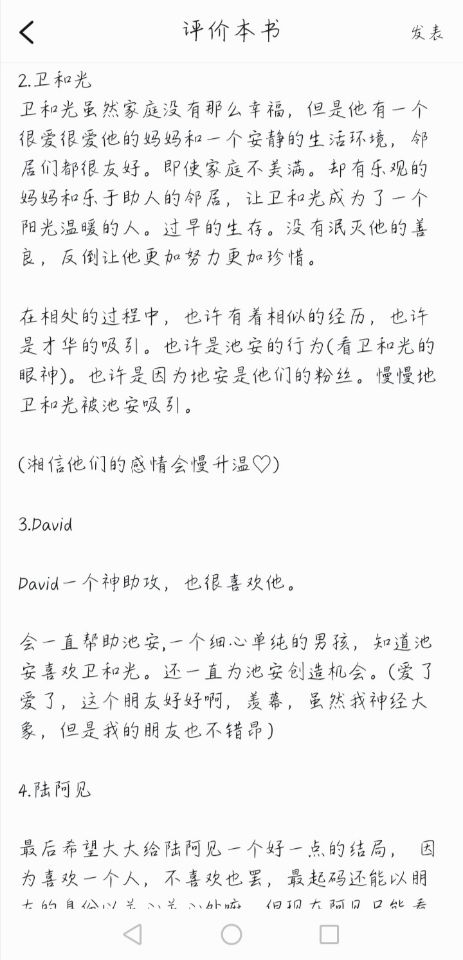 评价本书
发表
2.卫和光
卫和光虽然家庭没有那么幸福，但是他有一个
很爱很爱他的妈妈和一个安静的生活环境，邻
居们都很友好。即使家庭不美满。却有乐观的
妈妈和乐于助人的邻居，让卫和光成为了一个
阳光温暖的人。过早的生存。没有泯灭他的善
良，反倒让他更加努力更加珍惜。
在相处的过程中，也许有着相似的经历，也许
是才华的吸引。也许是池安的行为(看卫和光的
眼神)。也许是因为地安是他们的粉丝。慢慢地
卫和光被池安吸引。
(湘信他们的感情会慢升温♡)
3.David
David一个神助攻，也很喜欢他。
会一直帮助池安,一个细心单纯的男孩，知道池
安喜欢卫和光。还一直为池安创造机会。(爱了
爱了，这个朋友好好啊，羡幕，虽然我神经大
象，但是我的朋友也不错昂)
4.陆阿见
最后希望大大给陆阿见一个好一点的结局， 因
为喜欢一个人，不喜欢也罢，最起码还能以朋